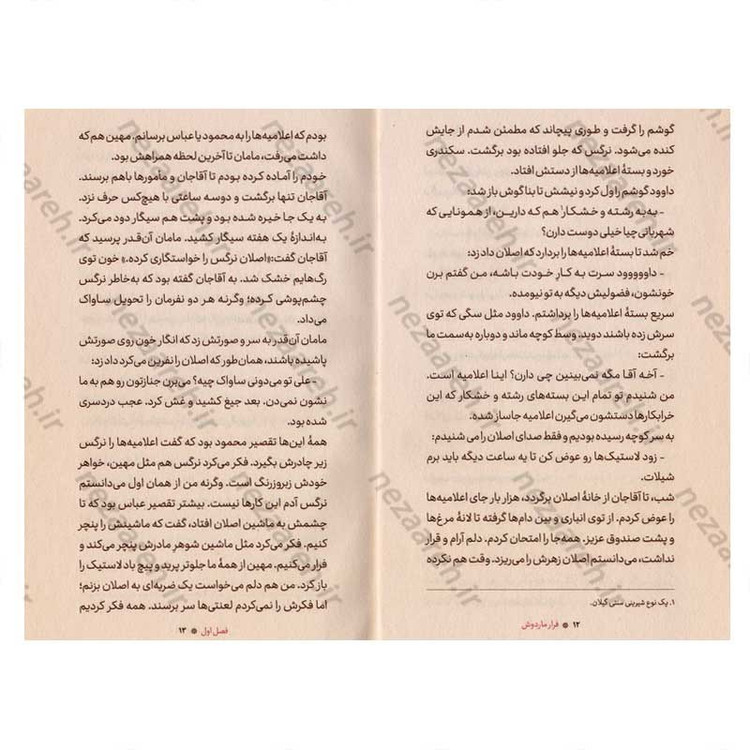 گوشم را گرفت و طوری پیچاند که مطمئن شدم از جایش
کنده می‌شود. نرگس که جلو افتاده بود برگشت. سکندری
خورد و بستهٔ اعلامیه‌ها از دستش افتاد.
داوود گوشم را ول کرد و نیشش تا بناگوش باز شد:
- به‌به رشته و خشکار۱ هم که دارین، از همونایی که
شهربانی‌چیا خیلی دوست دارن؟
خم شد تا بستهٔ اعلامیه‌ها را بردارد که اصلان داد زد:
- داوووود سرت به کار خودت باشه، من گفتم برن
خونشون، فضولیش دیگه به تو نیومده.
سریع بستهٔ اعلامیه‌ها را برداشتم. داوود مثل سگی که توی
سرش زده باشند دوید. وسط کوچه ماند و دوباره به‌سمت ما
برگشت:
- آخه آقا مگه نمی‌بینین چی دارن؟ اینا اعلامیه است.
من شنیدم تو تمام این بسته‌های رشته و خشکار که این
خرابکارها دستشون می‌گیرن اعلامیه جاساز شده.
به سر کوچه رسیده بودیم و فقط صدای اصلان را می شنیدم:
- زود لاستیک‌ها رو عوض کن تا یه ساعت دیگه باید برم
شیلات.
شب، تا آقاجان از خانهٔ اصلان برگردد، هزار بار جای اعلامیه‌ها
را عوض کردم. از توی انباری و بین دام‌ها گرفته تا لانهٔ مرغ‌ها
و پشت صندوق عزیز. همه‌جا را امتحان کردم. دلم آرام و قرار
نداشت، می‌دانستم اصلان زهرش را می‌ریزد. وقت هم نکرده
۱. یک نوع شیرینی سنتی گیلان.
۱۲ ● فرار مار دوش
بودم که اعلامیه‌ها را به محمود یا عباس برسانم. مهین هم که
داشت می‌رفت، مامان تا آخرین لحظه همراهش بود.
خودم را آماده کرده بودم تا آقاجان و مأمورها باهم برسند.
آقاجان تنها برگشت و دوسه ساعتی با هیچ‌کس حرف نزد.
به یک جا خیره شده بود و پشت هم سیگار دود می‌کرد.
به‌اندازهٔ یک هفته سیگار کشید. مامان آن‌قدر پرسید که
آقاجان گفت: «اصلان نرگس را خواستگاری کرده.» خون توی
رگ‌هایم خشک شد. به آقاجان گفته بود که به‌خاطر نرگس
چشم‌پوشی کرده؛ وگرنه هر دو نفرمان را تحویل ساواک
می‌داد.
مامان آن‌قدر به سر و صورتش زد که انگار خون روی صورتش
پاشیده باشند، همان‌طور که اصلان را نفرین می‌کرد داد زد:
- علی تو می‌دونی ساواک چیه؟ می‌برن جنازتون رو هم به ما
نشون نمی‌دن. بعد جیغ کشید و غش کرد. عجب دردسری
شده بود.
همهٔ این‌ها تقصیر محمود بود که گفت اعلامیه‌ها را نرگس
زیر چادرش بگیرد. فکر می‌کرد نرگس هم مثل مهین، خواهر
خودش زبروزرنگ است. وگرنه من از همان اول می‌دانستم
نرگس آدم این کارها نیست. بیشتر تقصیر عباس بود که تا
چشمش به ماشین اصلان افتاد، گفت که ماشینش را پنچر
کنیم. فکر می‌کرد مثل ماشین شوهر مادرش پنچر می‌کند و
فرار می‌کنیم. مهین از همهٔ ما جلوتر پرید و پیچ باد لاستیک را
باز کرد. من هم دلم می‌خواست یک ضربه‌ای به اصلان بزنم؛
اما فکرش را نمی‌کردم لعنتی‌ها سر برسند. همه فکر کردیم
فصل اول ● ۱۳
nezaareh.ir